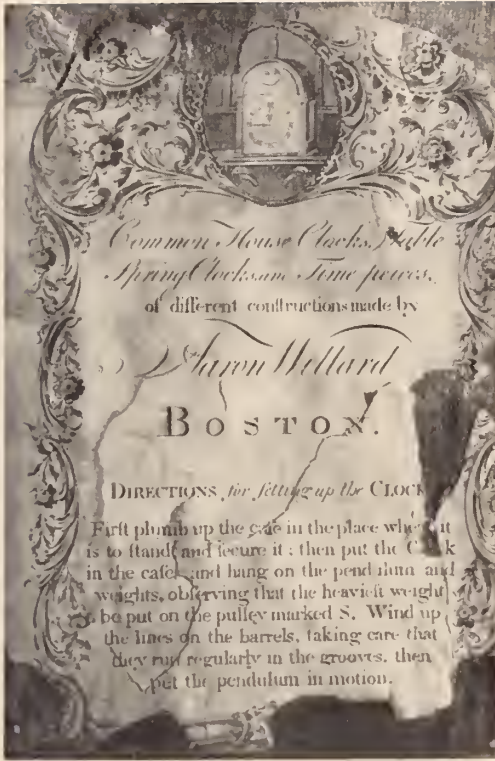 Common House Clocks, Table
Spring Clocks and Time peices,
of different conſtructions made by
Aaron Willard
BOSTON.
DIRECTIONS, for ſetting up the CLOCK
Firſt plumb up the caſe in the place where it
is to ſtand, and ſecure it ; then put the Clock
in the caſe, and hang on the pendulum and
weights, obſerving that the heavieſt weight
be put on the pulley marked S. Wind up
the lines on the barrels, taking care that
they run regularly in the grooves, then
put the pendulum in motion.